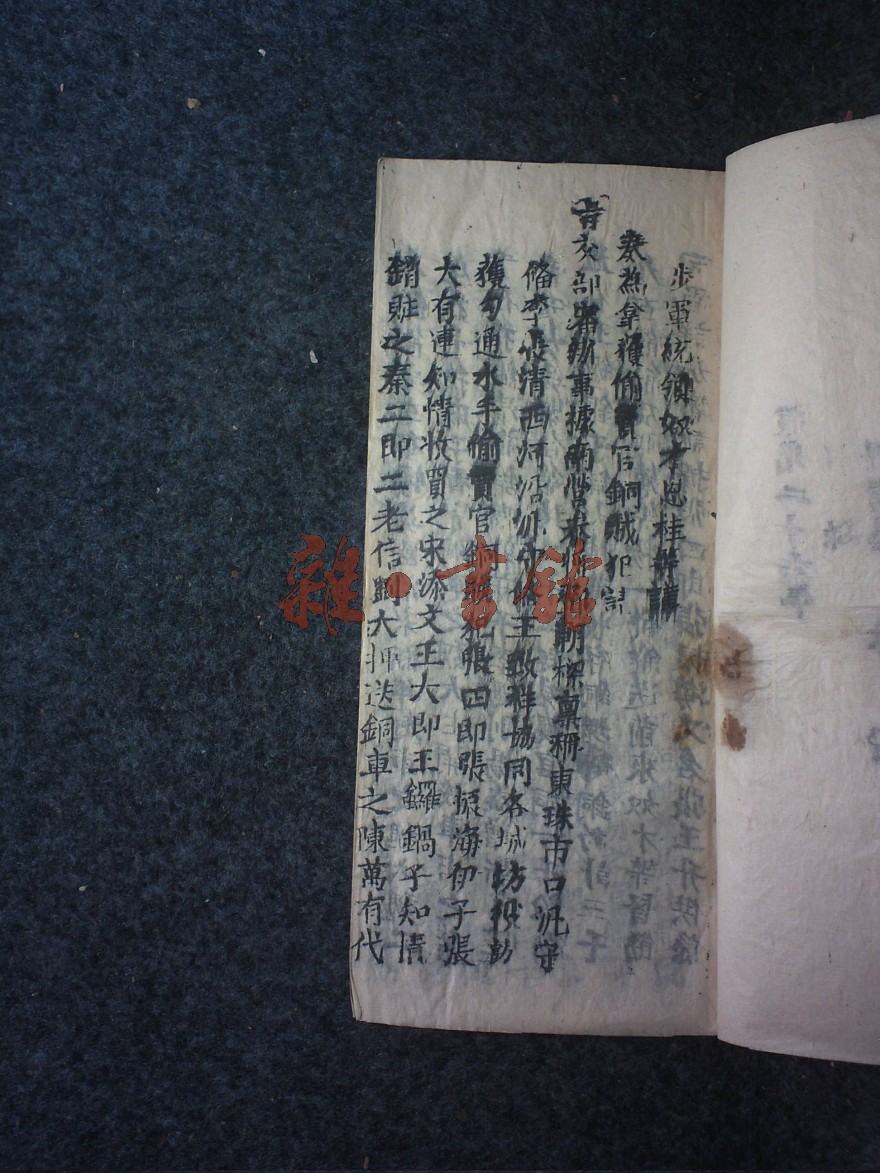 步軍統領奴才恩桂等謹
奏為拿獲偷賣官銅賊犯請
旨交部審辦事據南營東珠市口汛守
備李 清西河沿汛守備王致祥協同各城坊役訪
獲勾通水手偷賣官銅 張四即張振海伊子張
大有連知情收買之宋添文王大即王鑼鍋子知情
銷賍之秦二即二老信關大押送銅車之陳萬有代
雜·書舘